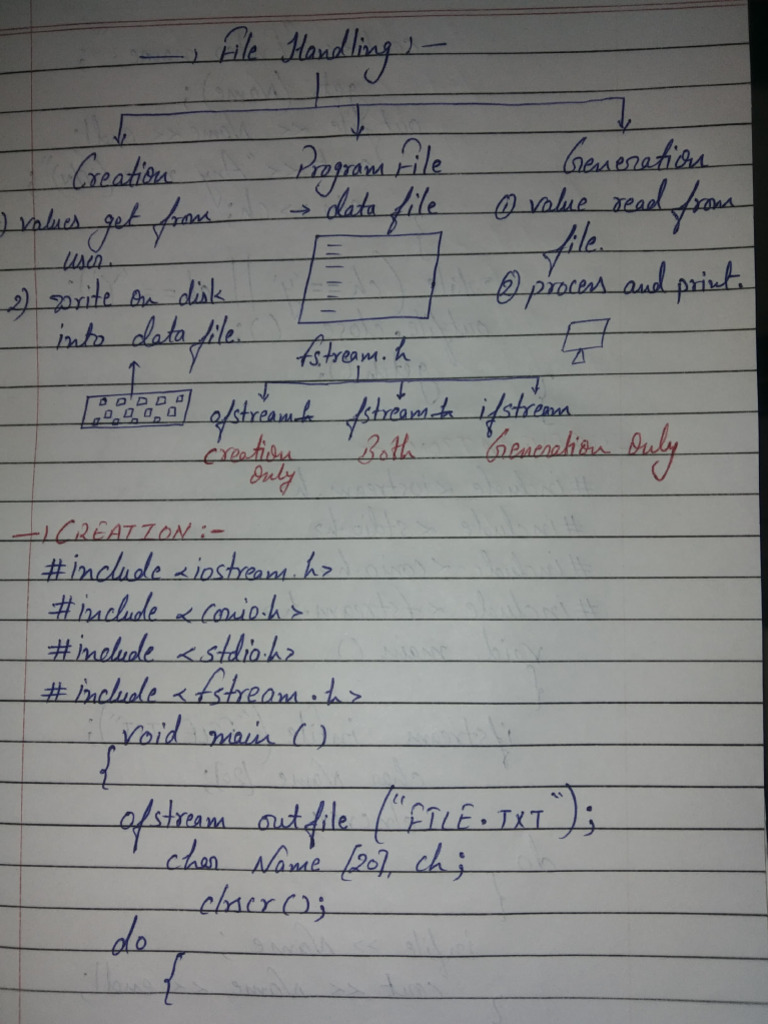 —, File Handling, —
Creation Program File Generation
1) values get from user.
→ data file
① value read from file.
2) write on disk into data file.
② process and print.
fstream.h
ofstream.h fstream.h ifstream
Creation Only Both Generation Only
—, CREATION :-
#include <iostream.h>
#include <conio.h>
#include <stdio.h>
#include <fstream.h>
void main ()
{
ofstream outfile ("FILE.TXT");
char Name [20], ch;
clrscr();
do
{